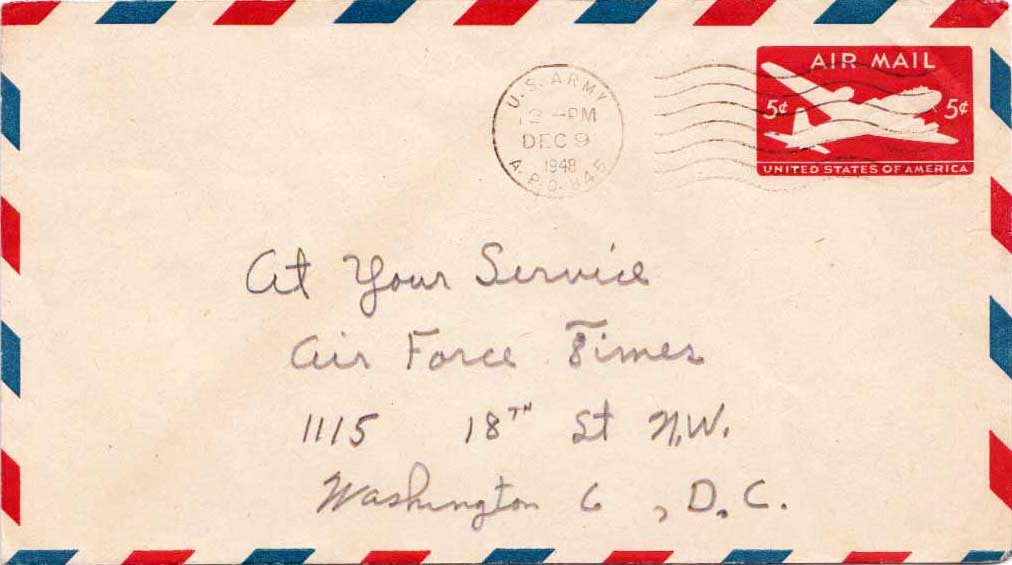 AIR MAIL
5¢ 5¢
UNITED STATES OF AMERICA
U.S. ARMY
PM
DEC 9
1948
A.P.O. 845
At Your Service
Air Force Times
1115 18TH St N.W.
Washington 6, D.C.